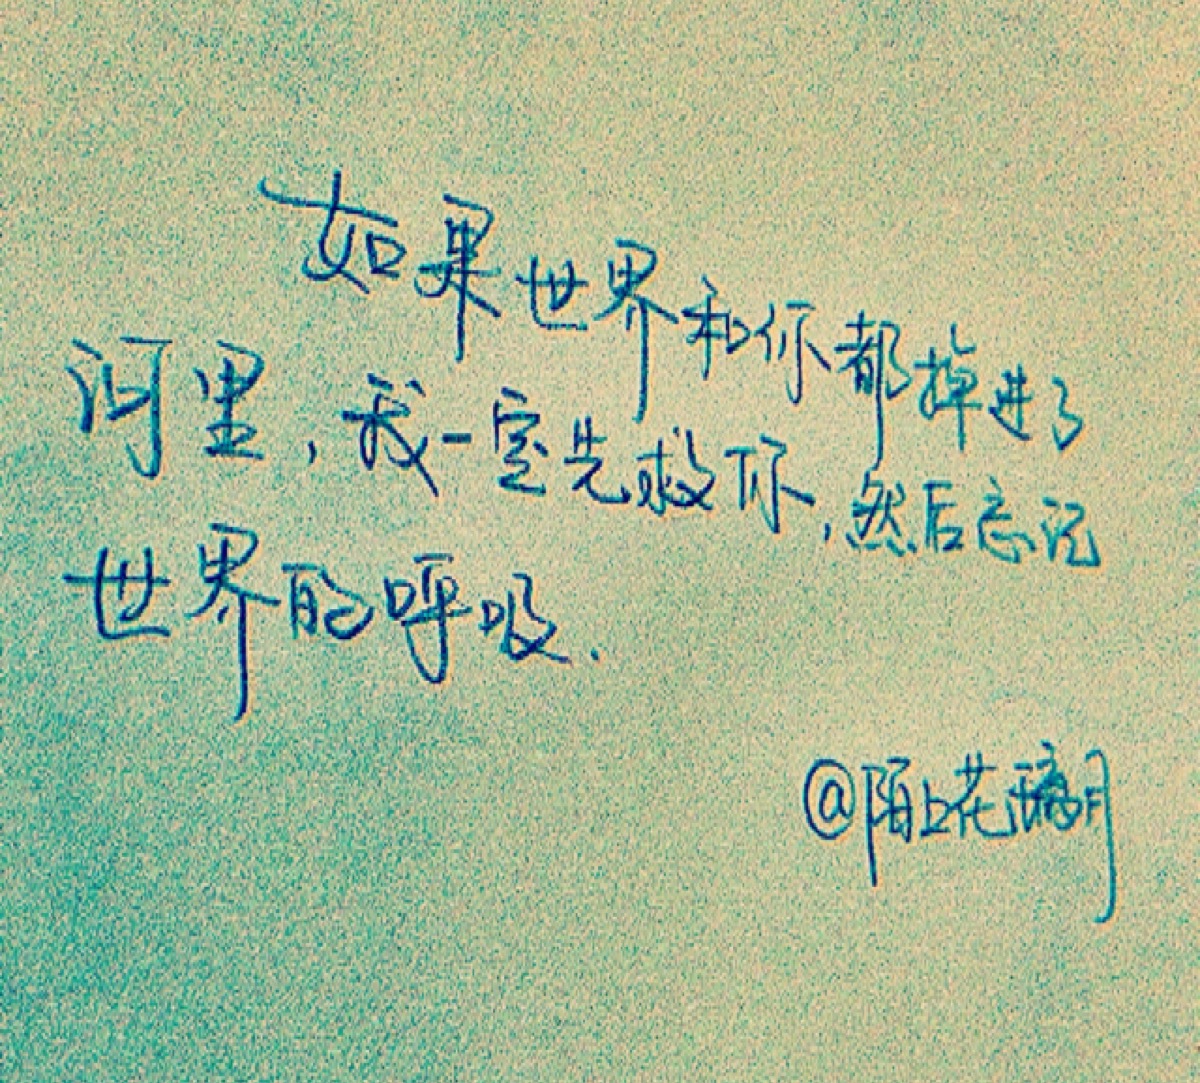 如果世界和你都掉进了
河里,我一定先救你,然后忘记
世界的呼吸.
@陌上花璃月